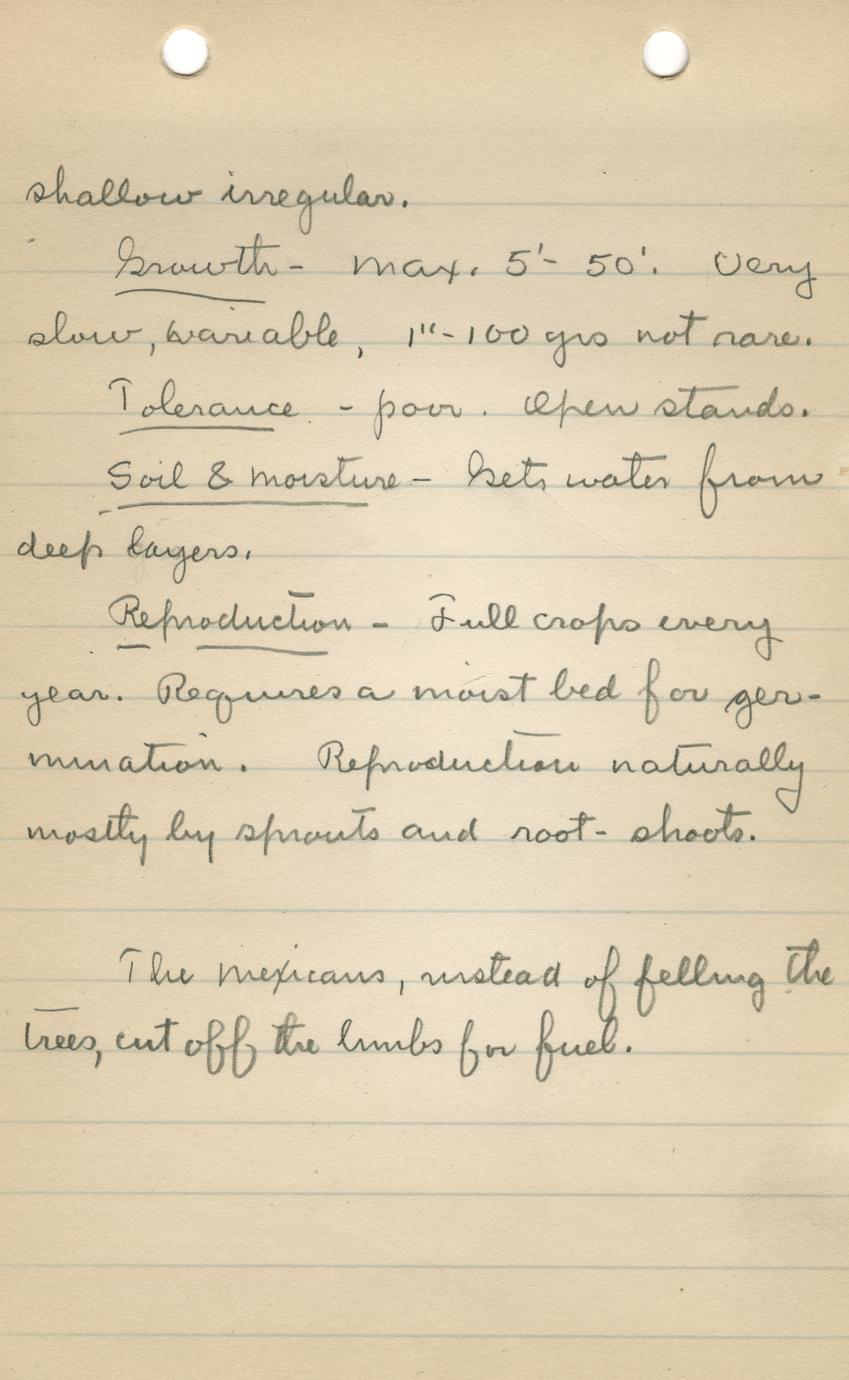 shallow irregular.
Growth - Max. 5'- 50'. Very
slow, variable, 1"-100 yrs not rare.
Tolerance - poor. Open stands.
Soil & Moisture - Gets water from
deep layers.
Reproduction - Full crops every
year. Requires a moist bed for ger-
mination. Reproduction naturally
mostly by sprouts and root- shoots.
The Mexicans, instead of felling the
trees, cut off the limbs for fuel.